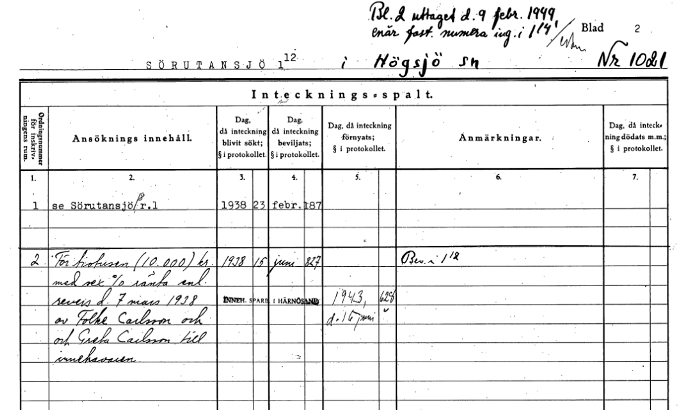 Bl. 2 uttaget d. 9 febr. 1949
enär fast. numera ing. i 1¹⁴
Blad 2
SÖRUTANSJÖ 1¹² i Högsjö sn Nr 10d1
Inteckningsspalt.
Ordningsnummer för inskrivningens rum.
Ansöknings innehåll.
Dag, då inteckning blivit sökt; § i protokollet.
Dag, då inteckning beviljats; § i protokollet.
Dag, då inteckning förnyats; § i protokollet.
Anmärkningar.
Dag, då inteckning dödats m.m.; § i protokollet.
1. 2. 3. 4. 5. 6. 7.
1 se Sörutansjö nr.1 1938 23 febr. 187
2 För tiotusen (10.000) kr. 1938 15 juni 827 Bev. i 1¹²
med sex % ränta enl.
revers d. 7 mars 1938 INNEH. SPARB. I HÄRNÖSAND 1943, 628
av Folke Carlsson och d. 15 juni
och Greta Carlsson till
innehavaren